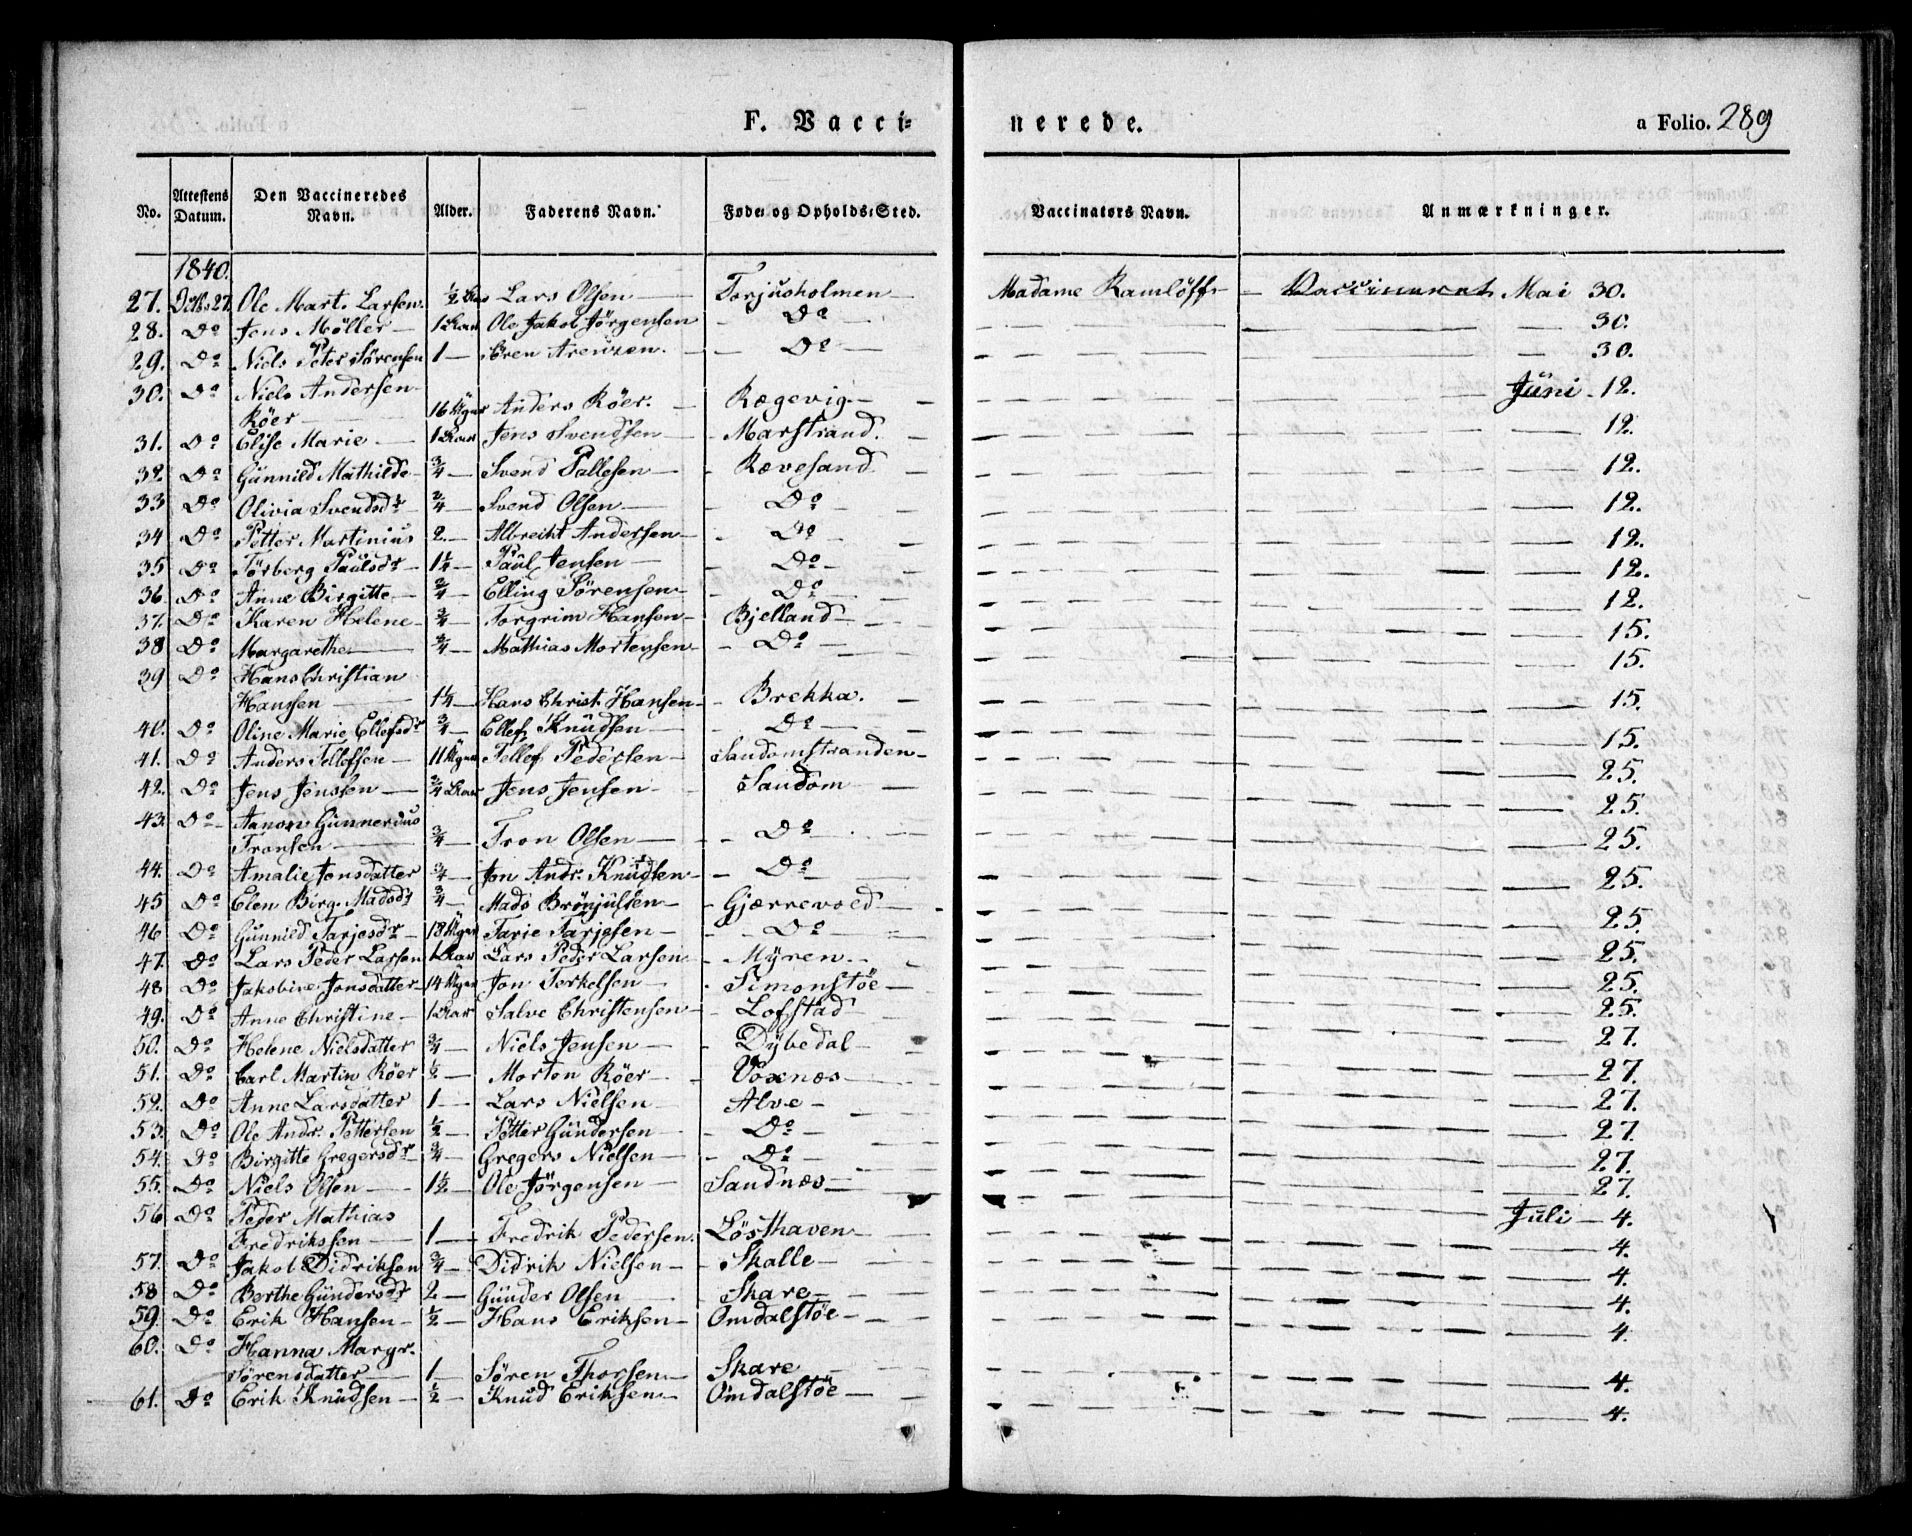 F. Vacci=
nerede.
a Folio. 289
No. Attestens Datum. Den Vaccineredes Navn. Alder. Faderens Navn. Føde- og Opholds-Sted. Vaccinators Navn. Anmærkninger.
1840.
27. 27. Ole Mart. Larsen. 1/2 Lars Olsen — Torjusholmen — Madame Ramlöff — Vaccineret Mai 30.
28. Do Jens Möller — 1 Ole Jakob Jörgensen — Do — 30.
29. Do Niels Peter Sörensen 1 — Sören Arenzen. — Do — 30.
30. Do Niels Andersen
Röer — 16 Anders Röer. — Rægevig. — Juni 12.
31. Do Elise Marie — 1 Jens Svendsen — Marstrand. — 12.
32 Do Gunnild Mathilde — 3/4 — Svend Pallesen — Rævesand — 12.
33 Do Olivia Svendsdr 3/4 — Svend Olsen — Do — 12.
34 Do Petter Martinius 2 — Albreckt Andersen — Do — 12.
35 Do Törberg Paulsdr 1 1/4 — Paul Jensen — Do — 12.
36 Do Anne Birgitte — 3/4 — Elling Sörensen — Do — 12.
37. Do Karen Helene — 3/4 — Torgrim Hansen — Bjelland — 15.
38 Do Margarethe — 3/4 — Mathias Mortensen — Do — 15.
39 Do Hans Christian
Hanssen — 1 1/4 — Hans Christ. Hansen — Brekka. — 15.
40. Do Oline Marie Ellefsdr 3/4 — Ellef Knudsen — Do — 15.
41. Do Anders Tellefsen — 11 Tellef Pedersen — Sandomstranden — 25.
42. Do Jens Jenssen — 3/4 Jens Jensen — Sandom — 25.
43. Do Aanon Gunnerius
Tronsen — 3/4 — Tron Olsen — Do — 25.
44. Do Amalie Jonsdatter 3/4 — Jon Andr. Knudsen — Do — 25.
45 Do Elen Birg. Madsdr 3/4 — Mads Brönjulsen — Gjærrevold — 25.
46 Do Gunnild Tarjesdr — 18 Tarie Tarjesen — Do — 25.
47. Do Lars Peder Larsen 1 Lars Peder Larsen — Myren — 25.
48 Do Jakobine Jonsdatter — 14 Jon Terkelsen — Simonstöe — 25.
49. Do Anne Christine — 1 Salve Christensen — Lofstad — 25.
50. Do Helene Nielsdatter 3/4 — Niels Jensen — Dybedal — 27.
51. Do Carl Martin Röer 1/2 — Morten Röer — Voxnæs — 27.
52. Do Anne Larsdatter 1 — Lars Nielsen — Alve — 27.
53. Do Ole Andr. Pettersen 1/2 — Petter Gundersen — Do — 27.
54. Do Birgitte Gregersdr — 3/4 — Gregers Nielsen — Do — 27.
55. Do Niels Olsen — 1 1/2 — Ole Jörgensen — Sandnæs — 27.
56 Do Peder Mathias
Fredrikssen — 1 — Fredrik Pedersen. Lösthaven — Juli — 4.
57. Do Jakob Didriksen 3/4 — Didrik Nielsen — Skalle — 4.
58 Do Berthe Gundersdr 2 — Gunder Olsen — Skare — 4.
59. Do Erik Hansen — 1/2 — Hans Eriksen — Omdalstöe — 4.
60. Do Hanna Margr.
Sörensdatter — 1 — Sören Thorsen — Skare — 4.
61. Do Erik Knudsen — 1/2 — Knud Eriksen — Omdalstöe — 4.